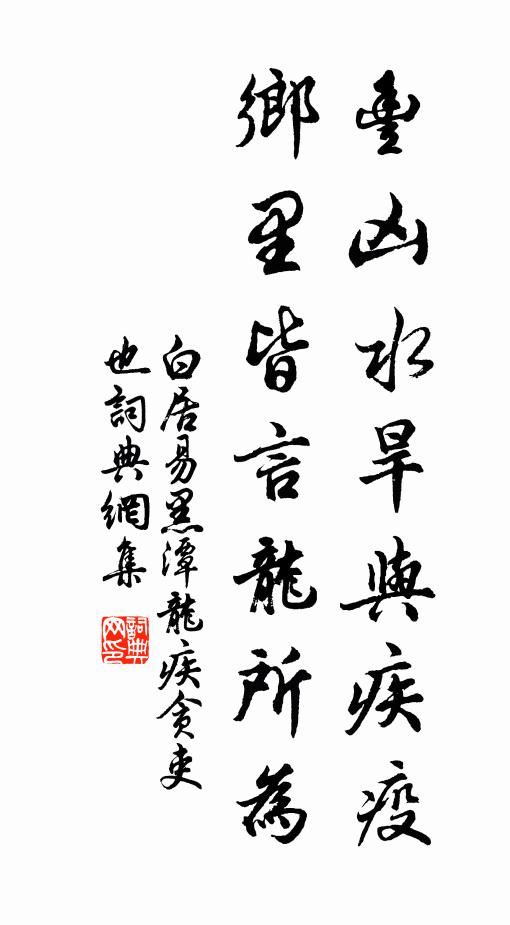 豐凶水旱與疾疫
鄉里皆言龍所為
白居易黑潭龍疾貪吏
也詞典網集
詞典
网印